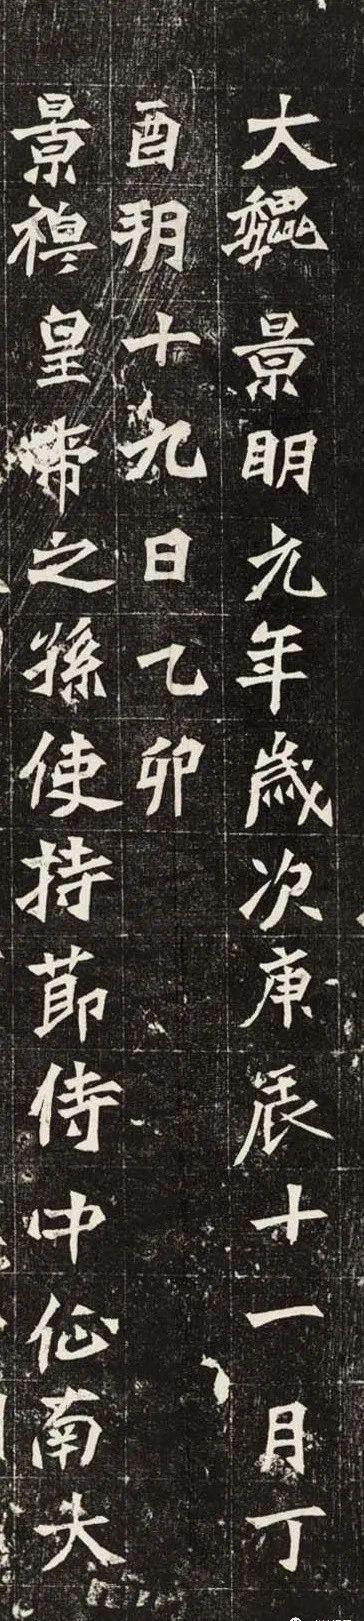 大魏景明元年歲次庚辰十一月丁
酉朔十九日乙卯
景穆皇帝之孫使持節侍中征南大